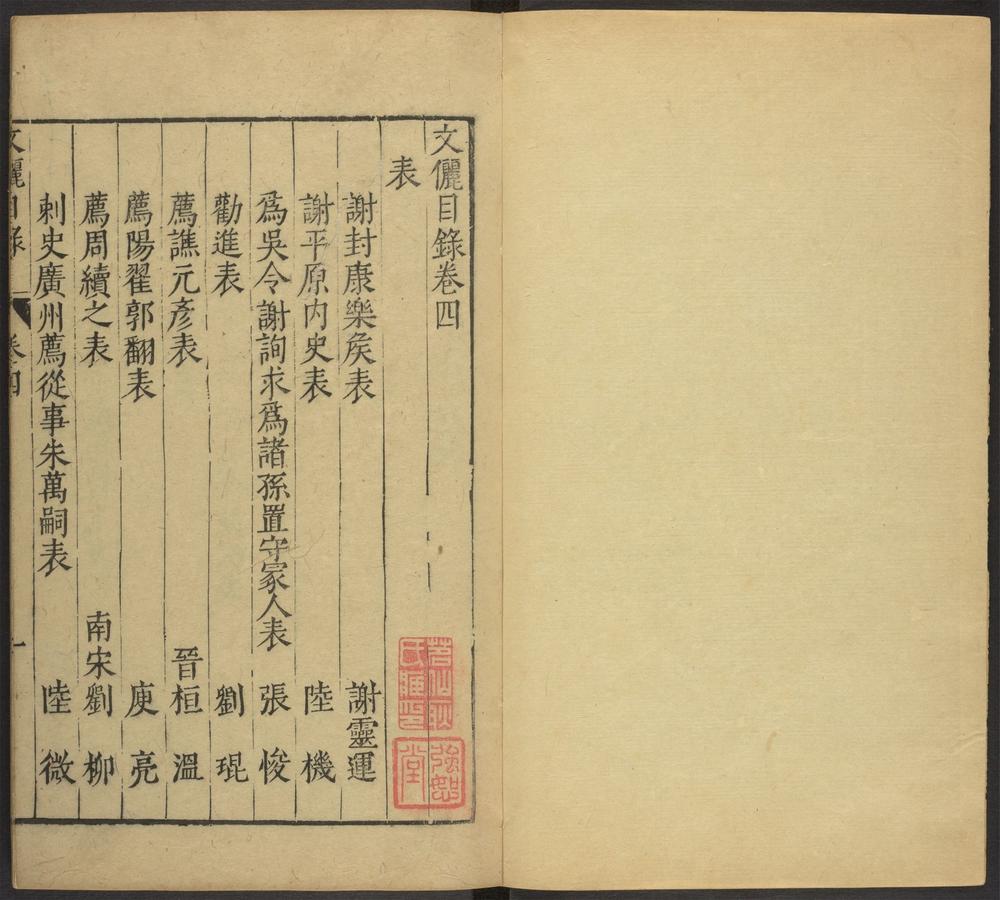 文儷目錄卷四
表
謝封康樂矦表 謝靈運
謝平原内史表 陸機
爲吳令謝詢求爲諸孫置守冢人表 張悛
勸進表 劉琨
薦譙元彥表 晉桓溫
薦陽翟郭翻表 庾亮
薦周續之表 南宋劉柳
刺史廣州薦從事朱萬嗣表 陸微
文儷目錄 卷四 一
強恕堂